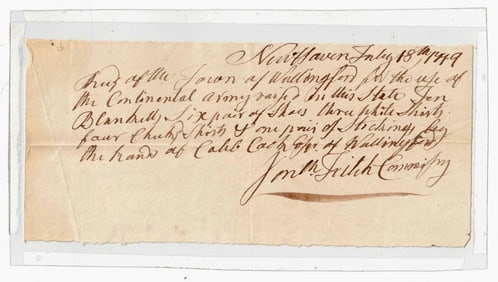 New Haven July 18th 1779
Recd of the Town of Wallingford for the use of
the Continental Army raised in this State Ten
Blankets Six pair of Shoes three white Shirts
four Check Shirts & one pair of Stockings by
the hands of Caleb Cook Esqr. of Wallingford
Jonth Fitch Commissry